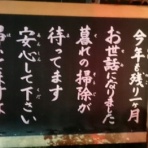 今年も残り一ヶ月
お世話になりました
暮れの掃除が
待ってます
安心して下さい